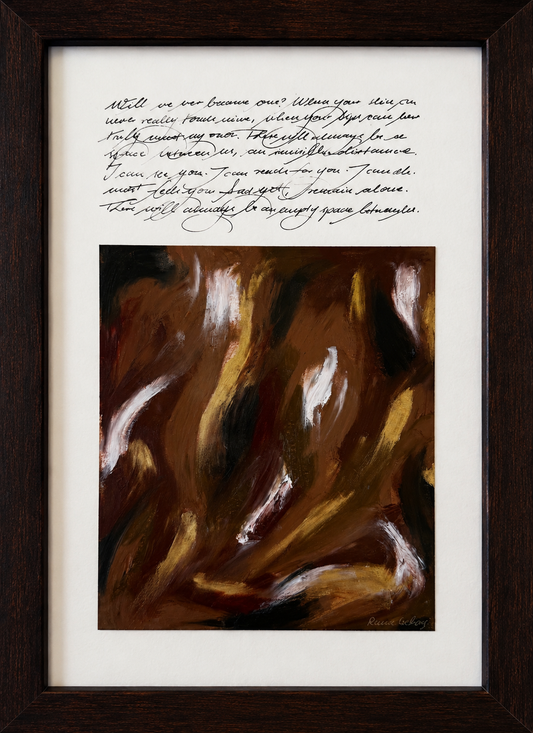 Will we ever become one? When your skin can
never really touch mine, when your lips can
truly my own. There will always be
space between us, an invisible distance.
I can see you. I can reach for you. I can
most feel you. And yet, I remain alone.
There will always be an empty space between us.